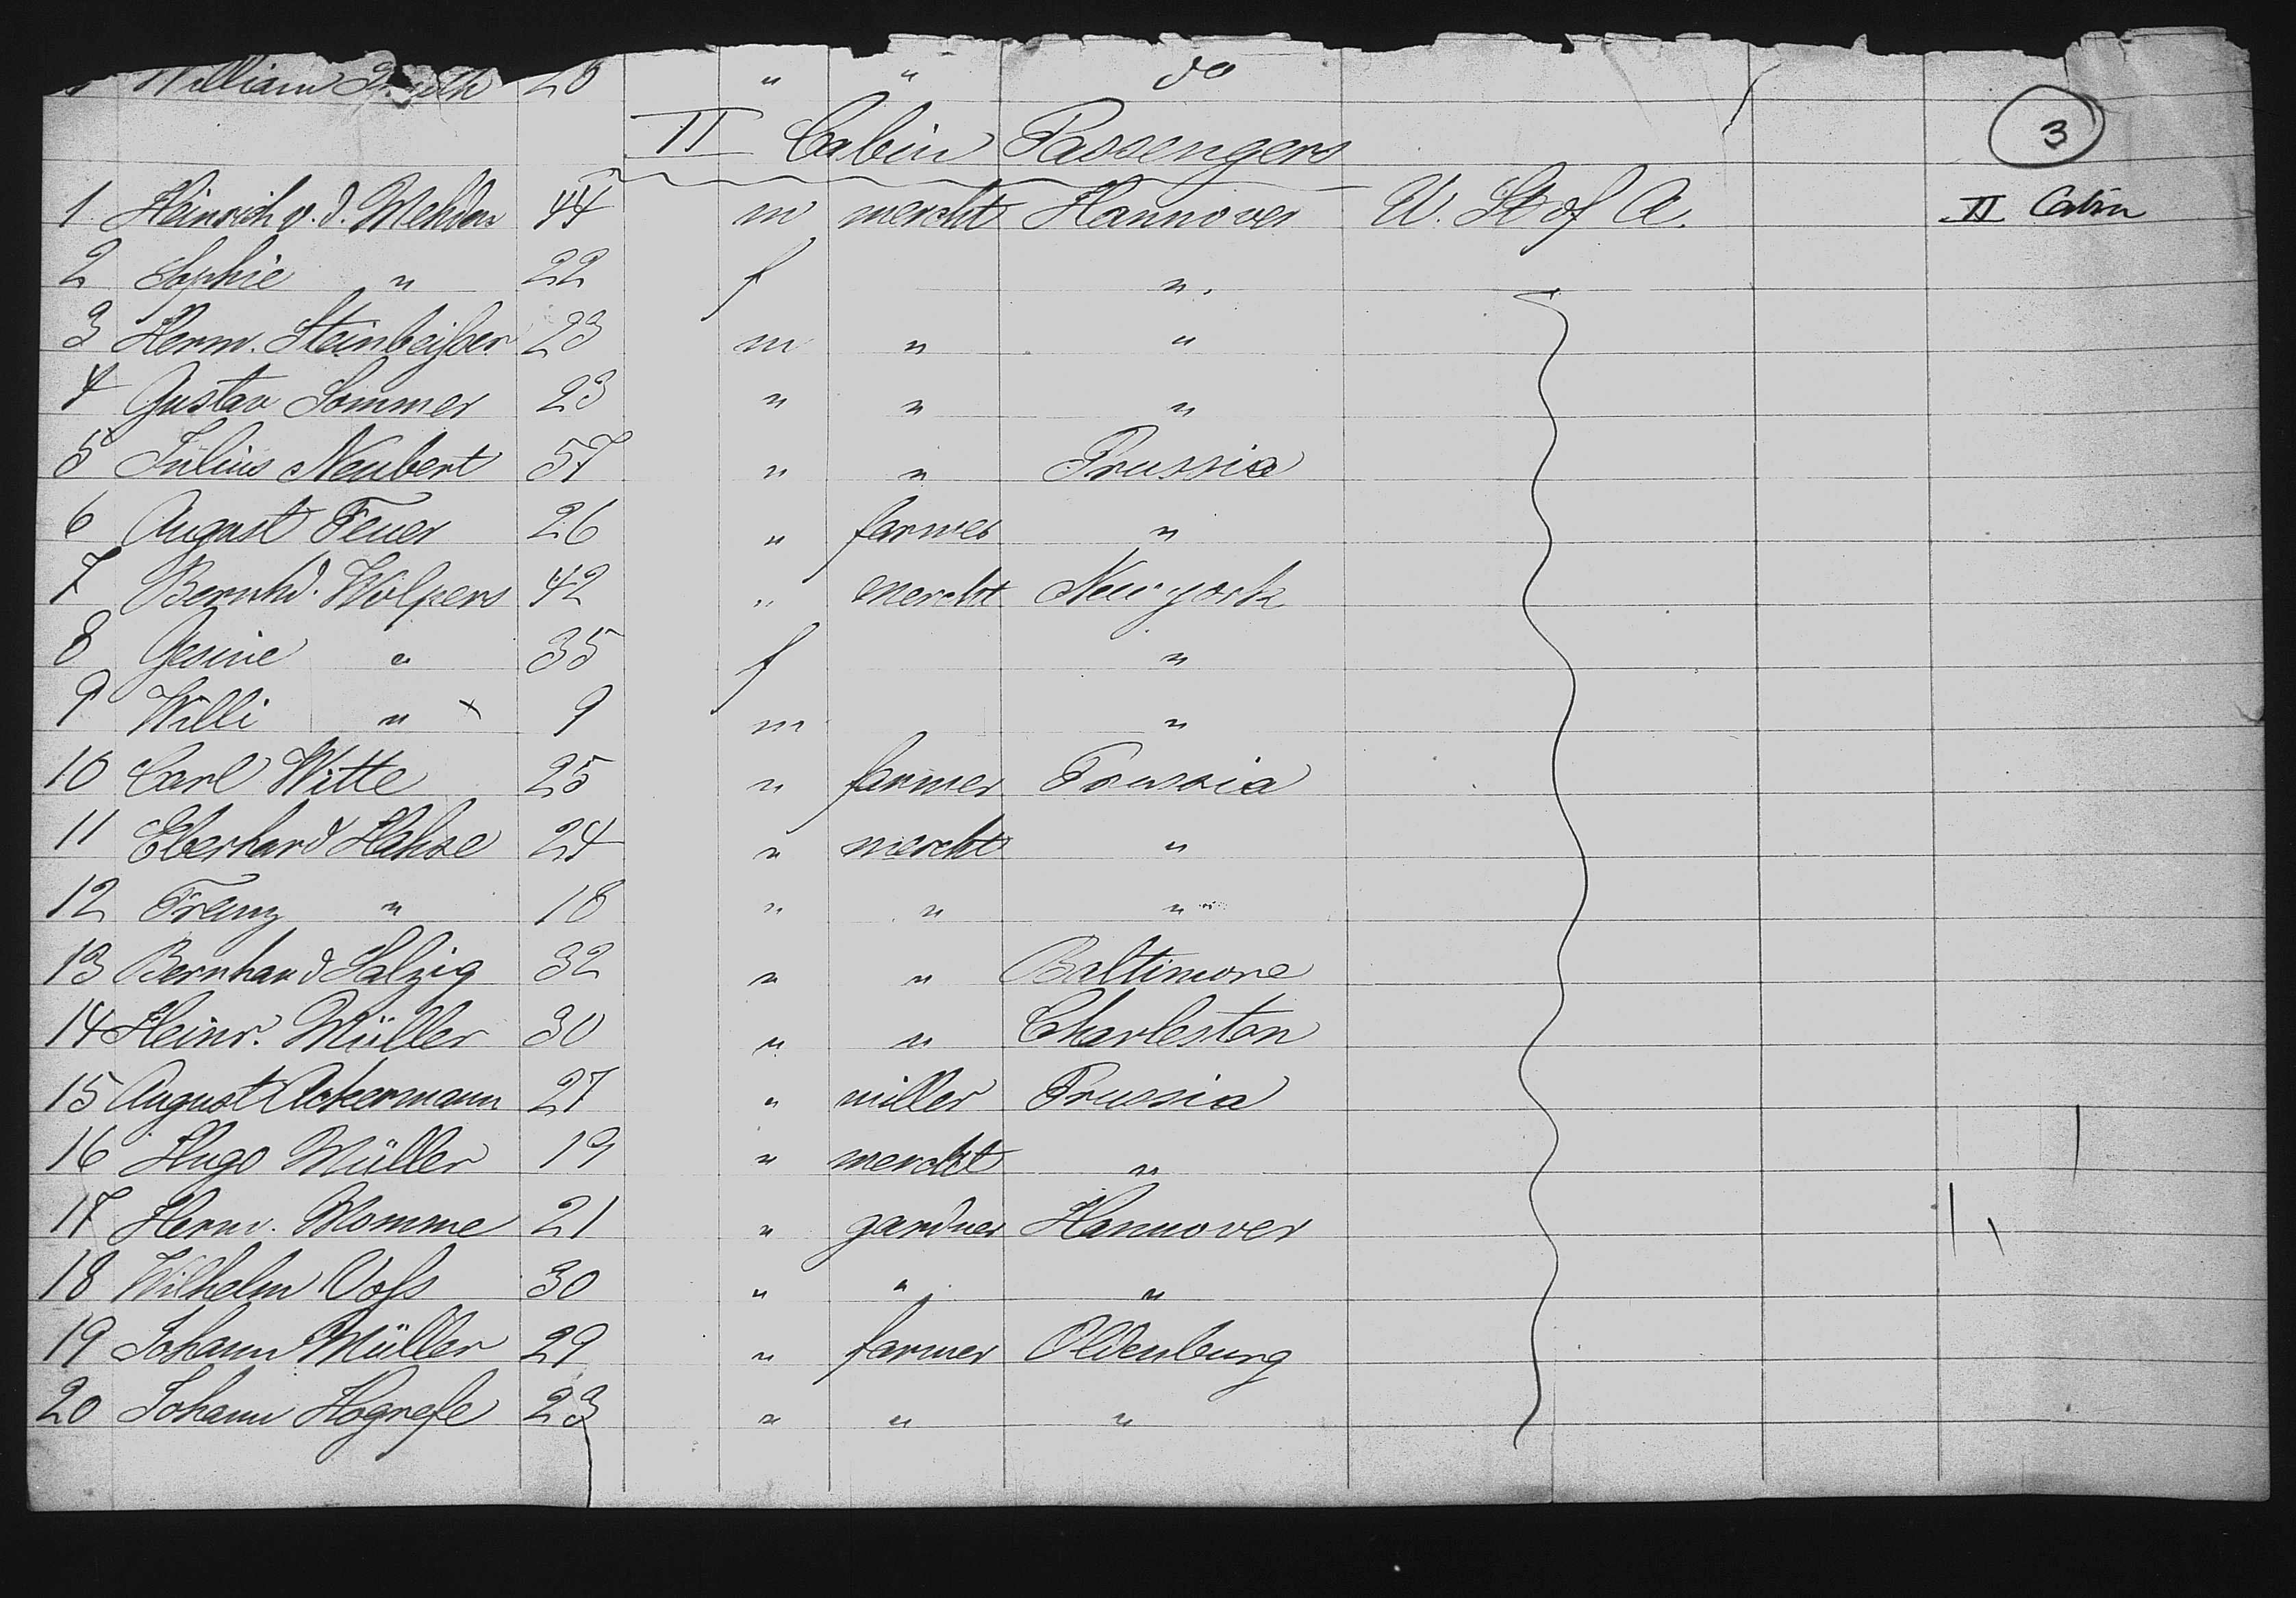 William 28 " " do
II Cabin Passengers
3
1 Heinrich v. d. Mehden 44 m mercht Hannover U. St of A. II Cabin
2 Sophie " 22 f ".
3 Herm. Steinbeißer 23 m " "
4 Gustav Sommer 23 " " "
5 Julius Neubert 57 " " Prussia
6 August Feuer 26 " farmer "
7 Bernhd. Wolpers 42 " mercht New york
8 Gesine " 35 f "
9 Willi " x 9 m "
10 Carl Witte 25 " farmer Prussia
11 Eberhard Hehse 24 " mercht "
12 Franz " 18 " " "
13 Bernhard Salzig 32 " " Baltimore
14 Heinr. Müller 30 " " Charleston
15 August Ackermann 27 " miller Prussia
16 Hugo Müller 19 " mercht "
17 Herm. Momme 21 " gardner Hannover
18 Wilhelm Voß 30 " " "
19 Johann Müller 29 " farmer Oldenburg
20 Johann Hogrefe 23 " " "